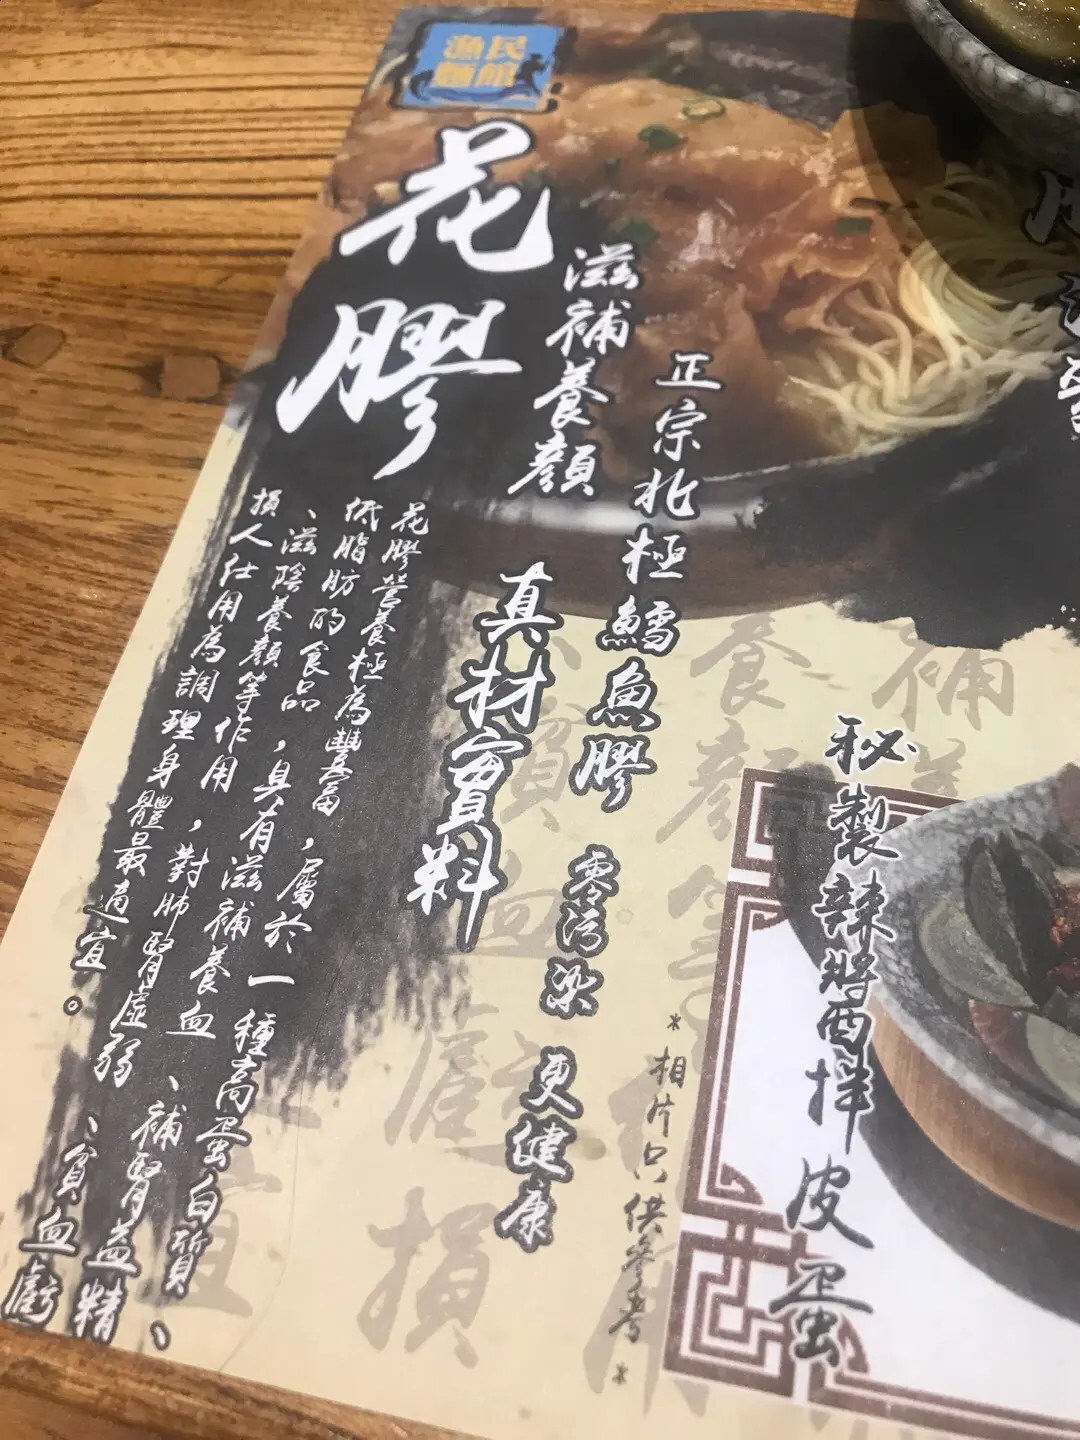 漁民
麵館
花膠
滋補養顏
正宗北極鱈魚膠
真材實料
零污染
更健康
花膠營養極為豐富，屬於一種高蛋白質、
低脂肪的食品，具有滋補養血、補腎益精
、滋陰養顏等作用，對肺腎虛弱、貧血虧
損人仕用為調理身體最適宜。
*相片只供參考*
秘製辣醬西拌皮蛋
養顏
補
血
虧損